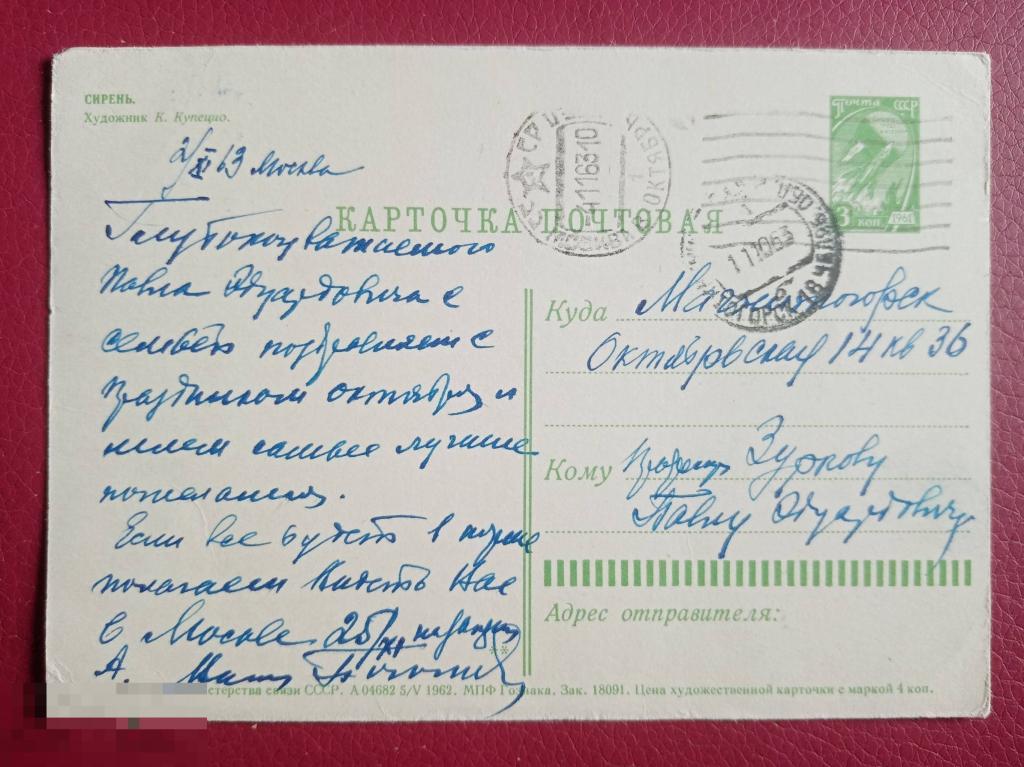 СИРЕНЬ.
Художник К. Купецио.
2/XI 63 Москва
КАРТОЧКА ПОЧТОВАЯ
ПОЧТА СССР
3 коп
1961
Глубокоуважаемого
Павла Эдуардовича с
семьёю поздравляем с
праздником октября и
шлем самые лучшие
пожелания.
Если все будет в норме
полагаем видеть Вас
в Москве 25/XI
А.
Куда Магнитогорск
Октябрьская 14 кв 36
Кому Зуркову
Павлу Эдуардовичу
Адрес отправителя:
стерства связи СССР. А 04682 5/V 1962. МПФ Гознака. Зак. 18091. Цена художественной карточки с маркой 4 коп.